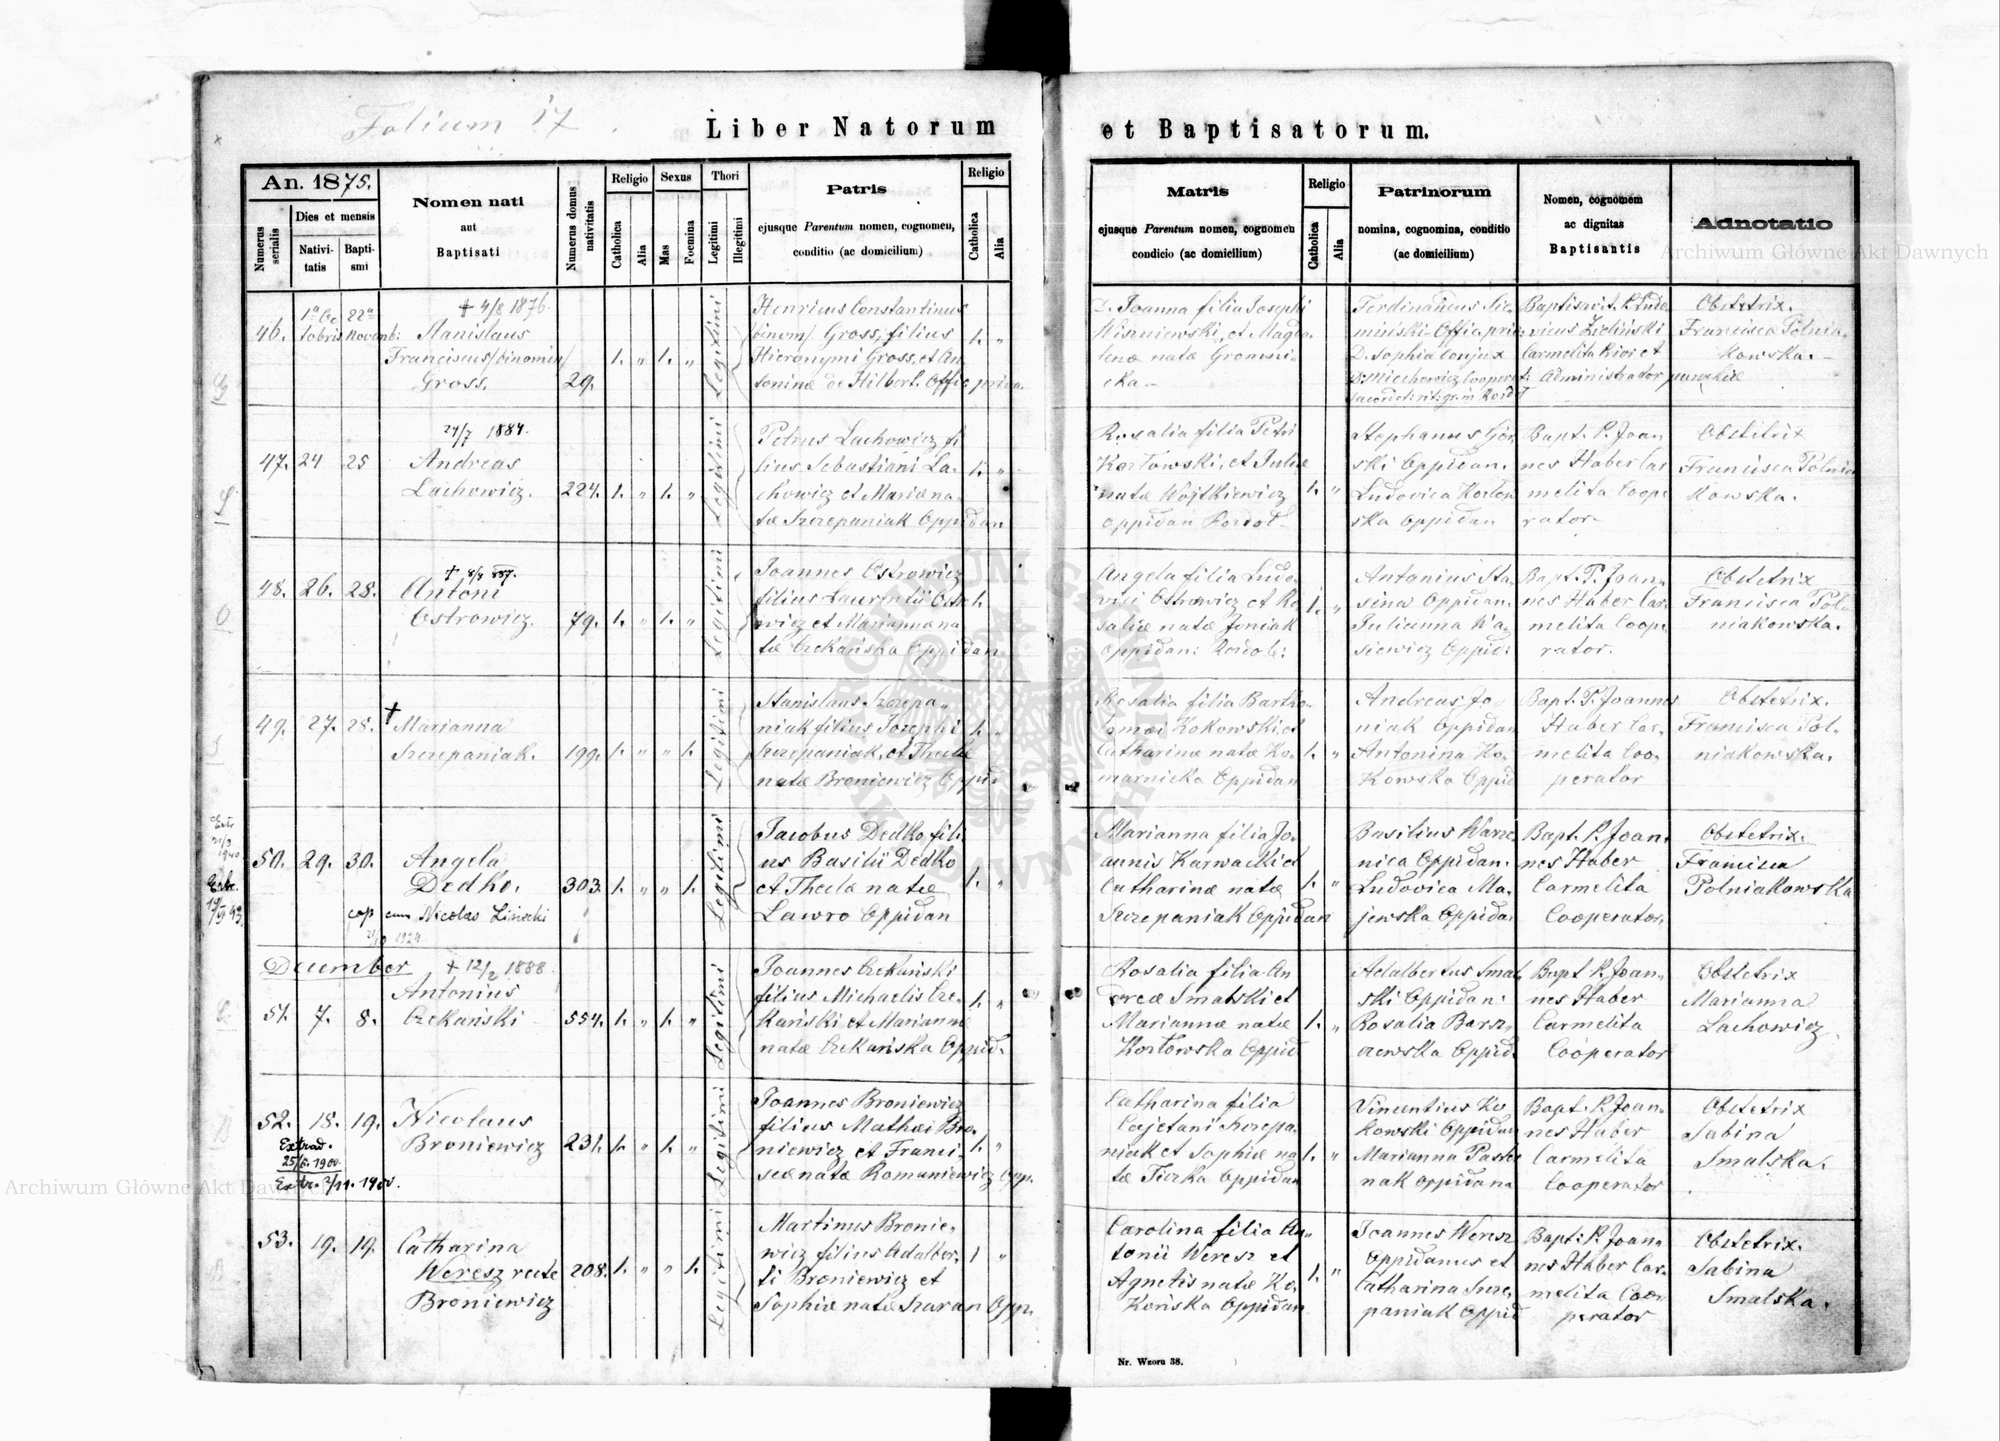 Folium 17.
Liber Natorum et Baptisatorum.
An. 1875.
Numerus serialis
Dies et mensis
Nativi-
tatis
Bapti-
smi
Nomen nati
aut
Baptisati
Numerus domus nativitatis
Religio
Catholica
Alia
Sexus
Mas
Foemina
Thori
Legitimi
Illegitimi
Patris
ejusque Parentum nomen, cognomen,
conditio (ac domicilium)
Religio
Catholica
Alia
Matris
ejusque Parentum nomen, cognomen
condicio (ac domicilium)
Religio
Catholica
Alia
Patrinorum
nomina, cognomina, conditio
(ac domicilium)
Nomen, cognomem
ac dignitas
Baptisantis
Adnotatio
46.
22a
Novemb:
+ 4/8 1876.
Stanislaus
Franciscus/binomin/
Gross.
29.
1. " 1. "
Legitimi
Henricus Constantinus
/binom/ Gross, filius
Hieronymi Gross, et An
toninæ de Hilbert. Offic priva.
1. "
D. Joanna filia Josephi
Wiszniewski, et Magda
lenæ natæ Gromni-
cka -
Ferdinandus Sie-
miński Offic priv:
D. Sophia conjux
Baptisavit P. Ludo
vicus Zieliński
Carmelita Prior et
Administrator parochiæ
Obstetrix.
Francisca Polnia-
kowska. -
47. 24 25
24/7 1884.
Andreas
Lachowicz.
224. 1. " 1. "
Legitimi
Petrus Lachowicz fi
lius Sebastiani La-
chowicz et Mariæ na-
tæ Szczepaniak Oppidan
1. "
Rosalia filia Petri
Kozłowski, et Juliæ
natæ Wojtkiewicz
oppidan
1. "
Stephanus Gór
ski Oppidan.
Ludovica Kozłow
ska Oppidan
Bapt. P. Joan
nes Haber Car
melita Coope
rator-
Obstetrix
Francisca Polnia
kowska.
48. 26. 28.
Antoni
Ostrowicz.
79. 1. " 1. "
Legitimi
Joannes Ostrowicz
filius Laurentii Ostro
wicz et Mariannæ na
tæ Czekańska Oppidan
1.
Angela filia Ludo-
vici Ostrowicz et Ro
saliæ natæ Joniak
Oppidan:
1. "
Antonius Sta
Oppidan.
Julianna Wa
siewicz Oppid:
Bapt. P. Joan-
nes Haber Car-
melita Coope
rator.
Obstetrix
Francisca Pol-
niakowska.
49. 27. 28.
+
Marianna
Szczepaniak.
199. 1. " " 1.
Legitimi
Stanislaus Szczepa-
niak filius Josephi
Szczepaniak, et Theclæ
natæ Broniewicz Oppid
1. "
Rosalia filia Bartho-
lomæi Kokowski et
Catharinæ natæ Ko-
marnicka Oppidan
1. "
Andreas Jo
niak Oppidan
Antonina Ko
kowska Oppid
Bapt. P. Joannes
Haber Car-
melita Coo-
perator
Obstetrix.
Francisca Pol-
niakowska.
50. 29. 30.
Angela
Dedko.
cop cum Nicolao Lisiecki
1924
303. 1. " " 1.
Legitimi
Jacobus Dedko fili
us Basilii Dedko
et Theclæ natæ
Lawro Oppidan
1. "
Marianna filia Jo-
annis Karwacki et
Catharinæ natæ
Szczepaniak Oppidan
1. "
Basilius Warze
nica Oppidan.
Ludovica Ma-
jewska Oppidan
Bapt. P. Joan-
nes Haber
Carmelita
Cooperator.
Obstetrix.
Francisca
Polniakowska
December
51. 7. 8.
+ 12/2 1888.
Antonius
Czekański
554. 1. " 1. "
Legitimi
Joannes Czekański
filius Michaelis Cze-
kański et Mariannæ
natæ Czekańska Oppid.
1. "
Rosalia filia An
dreæ Smalski et
Mariannæ natæ
Kozłowska Oppid
1. "
Adalbertus Smal
ski Oppidan:
Rosalia Barsz-
czewska Oppid.
Bapt. P. Joan-
nes Haber
Carmelita
Cooperator
Obstetrix
Marianna
Lachowicz
52. 18. 19.
Extrad.
25/6. 1900.
Extr. 2/11. 1900.
Nicolaus
Broniewicz
231. 1. " 1. "
Legitimi
Joannes Broniewicz
filius Mathæi Bro-
niewicz et Franci-
scæ natæ Romaniewicz Opp.
1. "
Catharina filia
Cajetani Szczepa-
niak et Sophiæ na
tæ Ticzka Oppidan
1. "
Vincentius Ko
kowski Oppidan
Marianna Paste
nak oppidana
Bapt. P. Joan-
nes Haber
Carmelita
Cooperator
Obstetrix
Sabina
Smalska.
53. 19. 19.
Catharina
Weresz recte
Broniewicz
208. 1. " " 1.
Legitimi
Martinus Bronie-
wicz filius Adalber-
ti Broniewicz et
Sophiæ natæ Szaran Opp.
1 "
Carolina filia An-
tonii Weresz et
Agnetis natæ Ko-
końska Oppidan
1. "
Joannes Weresz
Oppidanus et
Catharina Szcze
paniak Oppid
Bapt: P. Joan-
nes Haber Car-
melita Coo-
perator
Obstetrix.
Sabina
Smalska.
Nr. Wzoru 38.
Archiwum Główne Akt Dawnych
Archiwum Główne Akt Dawnych